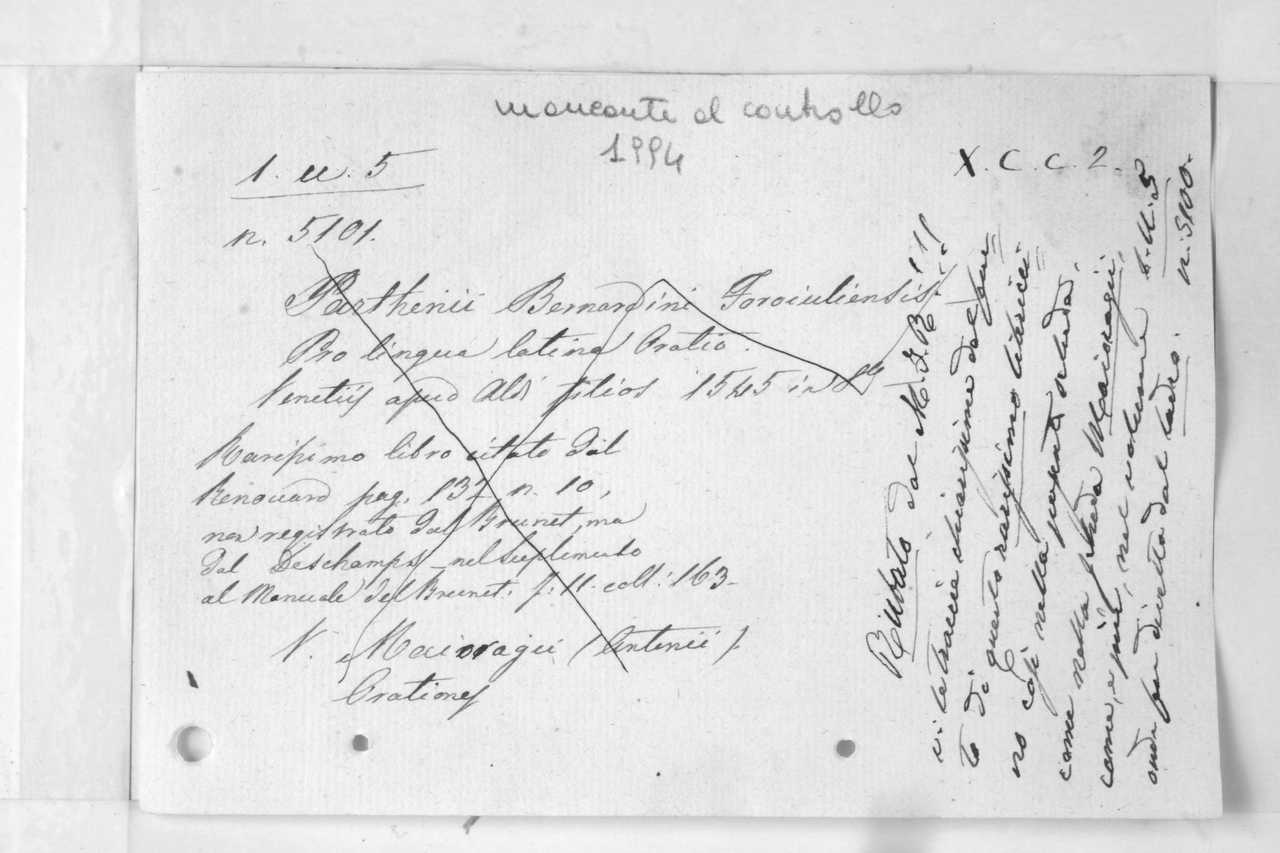 mancante al controllo
1994
1. u. 5
X. C. C. 2.
n. 5101.
Parthenii Bernardini Foroiuliensis.
Pro lingua latina Oratio.
Venetiis apud Aldi filios 1545 in 8º
Rarissimo libro citato dal
Renouard pag. 132 n. 10,
non registrato dal Brunet, ma
dal Deschamps nel suplemento
al Manuale del Brunet. f. 11. coll: 163-
V. Maioragii (Antonii).
Orationes
Rubato dal M. J. R!!!
v. la traccia chiarissima del
to di questo rarissimo
no così nella
come nella scheda Maioragii,
come, e più, nel volume 1. U. 5
dal ladro. n. 5100.